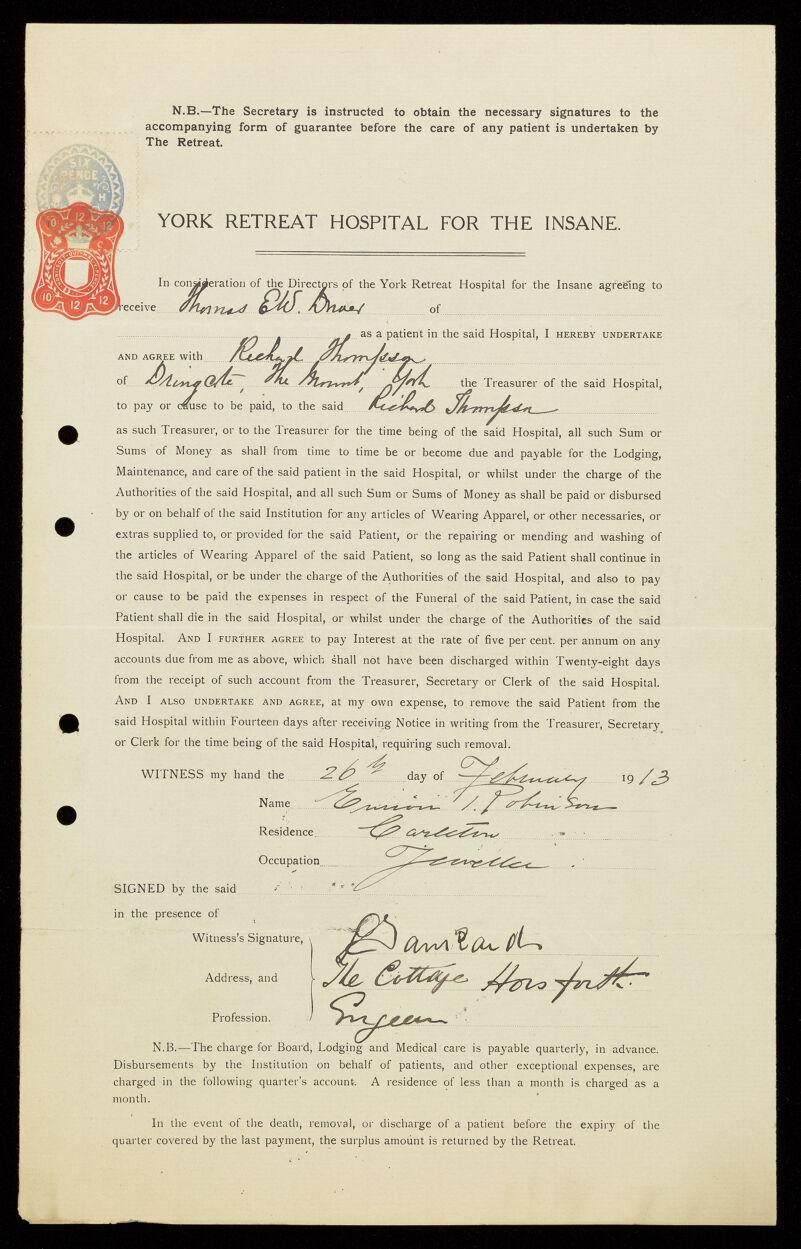 N.B.—The Secretary is instructed to obtain the necessary signatures to the
accompanying form of guarantee before the care of any patient is undertaken by
The Retreat.
SIX
PENCE
H
10 12 12
C
10 12 12
YORK RETREAT HOSPITAL FOR THE INSANE.
In consideration of the Directors of the York Retreat Hospital for the Insane agreeing to
receive Thomas E.W. Driver of
as a patient in the said Hospital, I HEREBY UNDERTAKE
AND AGREE with Richard Thompson
of Dringcote, The Mount, York the Treasurer of the said Hospital,
to pay or cause to be paid, to the said Richard Thompson
as such Treasurer, or to the Treasurer for the time being of the said Hospital, all such Sum or
Sums of Money as shall from time to time be or become due and payable for the Lodging,
Maintenance, and care of the said patient in the said Hospital, or whilst under the charge of the
Authorities of the said Hospital, and all such Sum or Sums of Money as shall be paid or disbursed
by or on behalf of the said Institution for any articles of Wearing Apparel, or other necessaries, or
extras supplied to, or provided for the said Patient, or the repairing or mending and washing of
the articles of Wearing Apparel of the said Patient, so long as the said Patient shall continue in
the said Hospital, or be under the charge of the Authorities of the said Hospital, and also to pay
or cause to be paid the expenses in respect of the Funeral of the said Patient, in case the said
Patient shall die in the said Hospital, or whilst under the charge of the Authorities of the said
Hospital. AND I FURTHER AGREE to pay Interest at the rate of five per cent. per annum on any
accounts due from me as above, which shall not have been discharged within Twenty-eight days
from the receipt of such account from the Treasurer, Secretary or Clerk of the said Hospital.
AND I ALSO UNDERTAKE AND AGREE, at my own expense, to remove the said Patient from the
said Hospital within Fourteen days after receiving Notice in writing from the Treasurer, Secretary
or Clerk for the time being of the said Hospital, requiring such removal.
WITNESS my hand the 26th day of February 1913
Name T. Robinson
Residence Carleton
Occupation Jeweller
SIGNED by the said
in the presence of
Witness's Signature,
Address, and The Cottage Horsforth.
Profession. Engineer
N.B.—The charge for Board, Lodging and Medical care is payable quarterly, in advance.
Disbursements by the Institution on behalf of patients, and other exceptional expenses, are
charged in the following quarter's account. A residence of less than a month is charged as a
month.
In the event of the death, removal, or discharge of a patient before the expiry of the
quarter covered by the last payment, the surplus amount is returned by the Retreat.